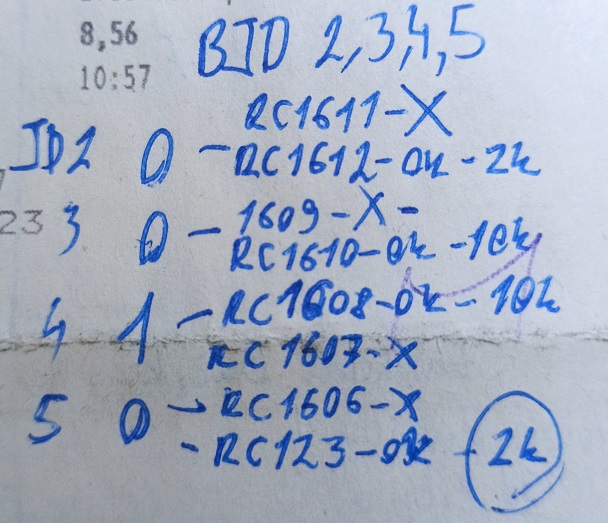 8,56
BJD 2,3,4,5
10:57
RC1611-X
JD2 0 - RC1612-0k - 2k
23
3 0 - 1609-X-
RC1610-0k -10k
4 1 - RC1608-0k - 10k
RC 1607-X
5 0 -> RC1606-X
- RC123-0k - 2k